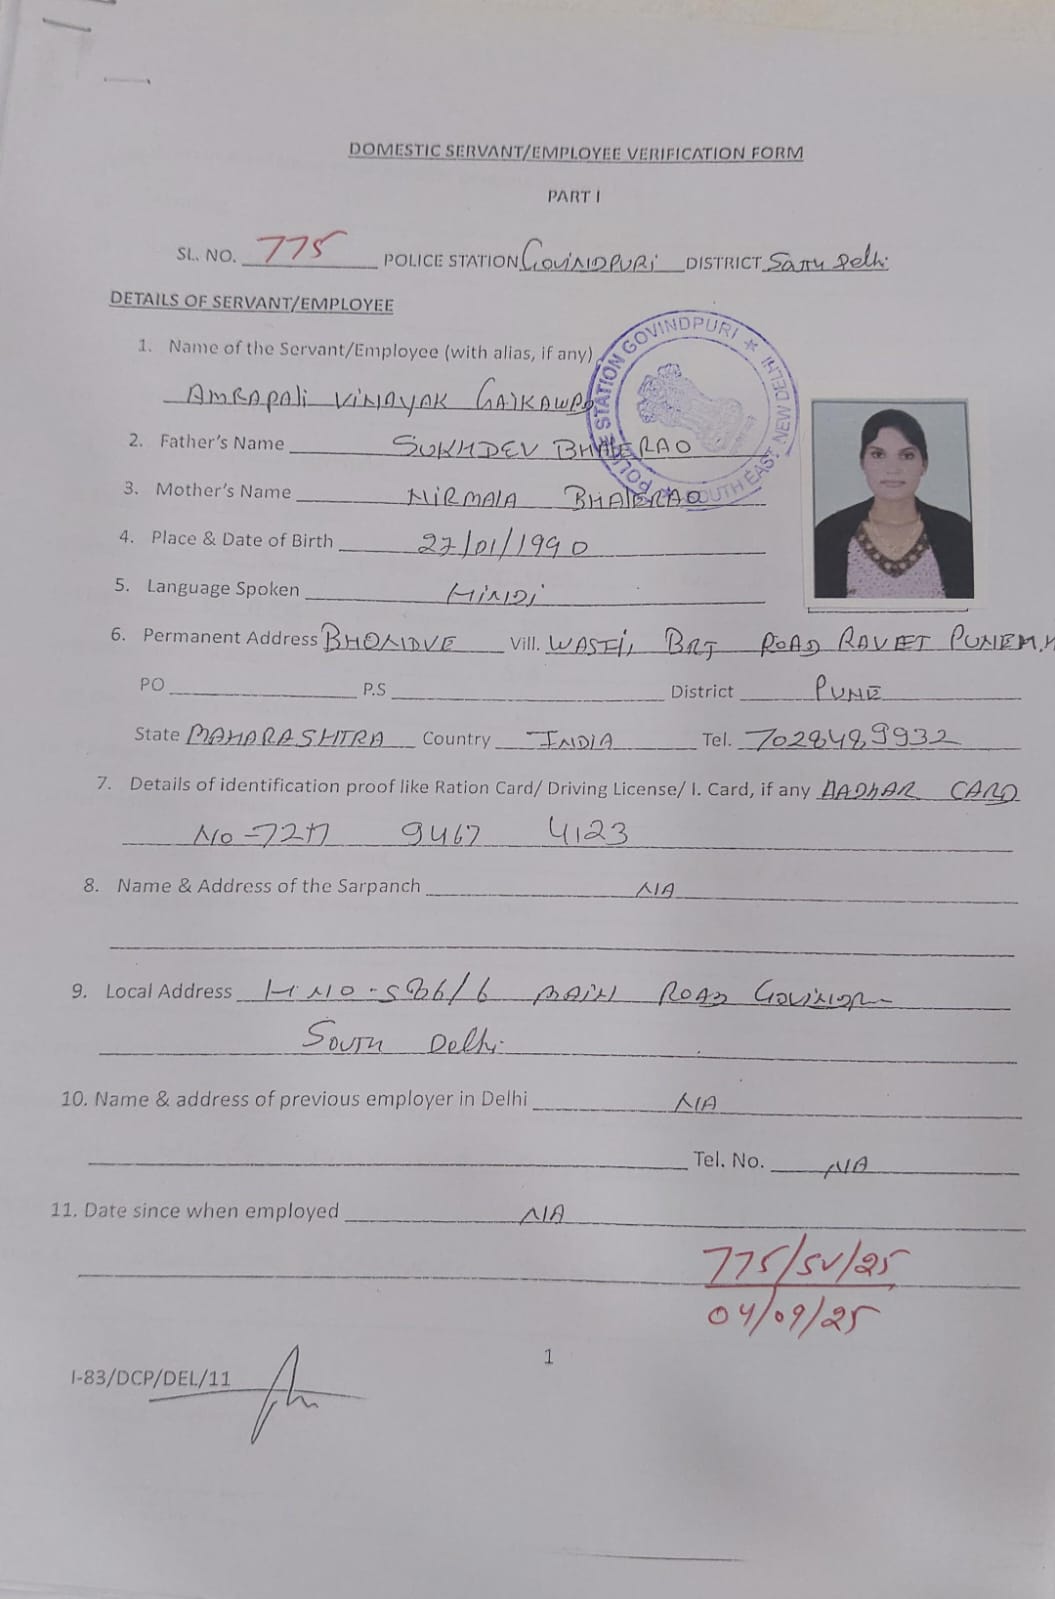 DOMESTIC SERVANT/EMPLOYEE VERIFICATION FORM
PART I
SL. NO. 775 POLICE STATION GOVINDPURI DISTRICT South Delhi
DETAILS OF SERVANT/EMPLOYEE
1. Name of the Servant/Employee (with alias, if any)
AMRAPALI VINAYAK GAIKAWAD
POLICE STATION GOVINDPURI ★ SOUTH EAST NEW DELHI ★
2. Father's Name SUKHDEV BHALERAO
3. Mother's Name NIRMALA BHALERAO
4. Place & Date of Birth 27/01/1990
5. Language Spoken HINDI
6. Permanent Address BHONDVE Vill. WASTI, BRT ROAD RAVET PUNE M.H
PO P.S District PUNE
State MAHARASHTRA Country INDIA Tel. 7028489932
7. Details of identification proof like Ration Card/ Driving License/ I. Card, if any AADHAR CARD
No - 9467 4123
8. Name & Address of the Sarpanch N/A
9. Local Address H NO - 586/6 MAIN ROAD
South Delhi
10. Name & address of previous employer in Delhi N/A
Tel. No. N/A
11. Date since when employed N/A
775/SV/25
04/09/25
1
I-83/DCP/DEL/11